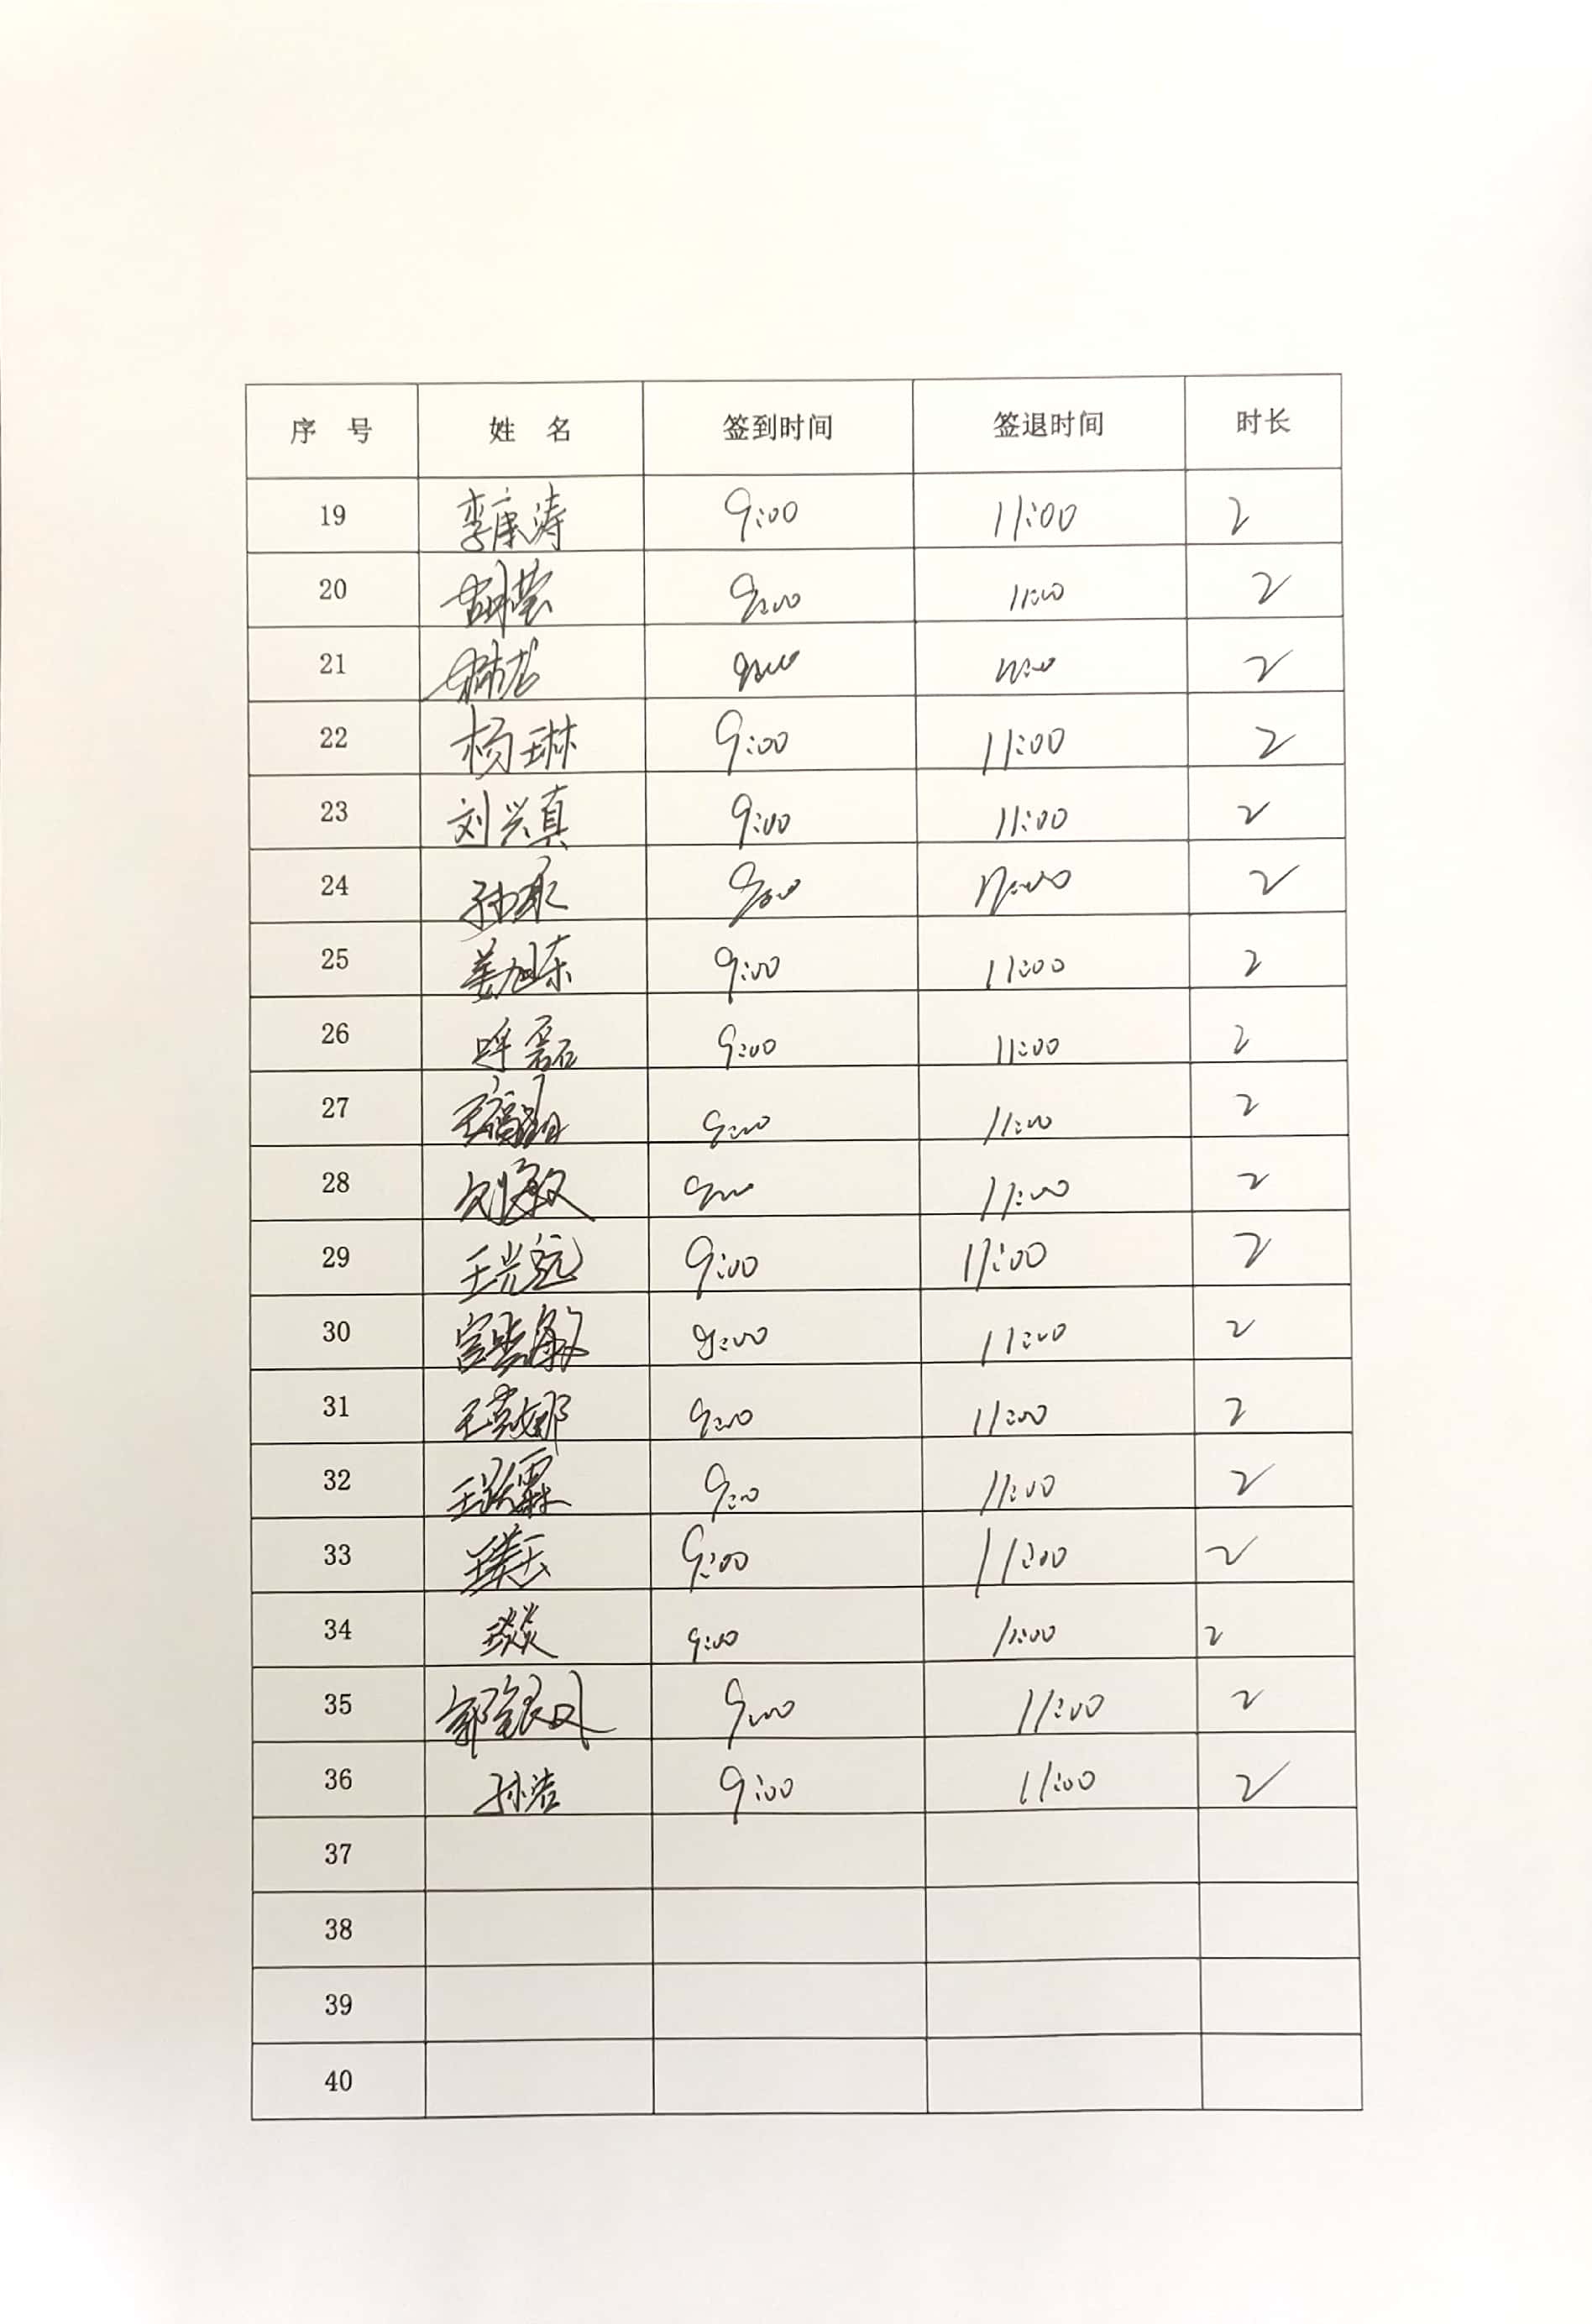 序 号 姓 名 签到时间 签退时间 时长
19 李康涛 9:00 11:00 2
20 胡莹 9:00 11:00 2
21 9:00 11:00 2
22 杨琳 9:00 11:00 2
23 刘兴真 9:00 11:00 2
24 9:00 11:00 2
25 姜旭东 9:00 11:00 2
26 呼磊 9:00 11:00 2
27 9:00 11:00 2
28 刘敏 9:00 11:00 2
29 王光远 9:00 11:00 2
30 9:00 11:00 2
31 王英娜 9:00 11:00 2
32 9:00 11:00 2
33 9:00 11:00 2
34 9:00 11:00 2
35 郭银凤 9:00 11:00 2
36 孙浩 9:00 11:00 2
37
38
39
40